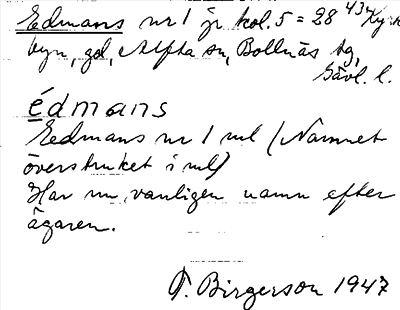 Edmans nr 1 jr kol. 5 = 28 434 Kyrk
byn, gd, Alfta sn, Bollnäs tg,
Gävl. l.
édmans
Eedmans nr 1 ml (Namnet
överstruket i ml)
Har nu vanligen namn efter
ägaren.
T. Birgerson 1947